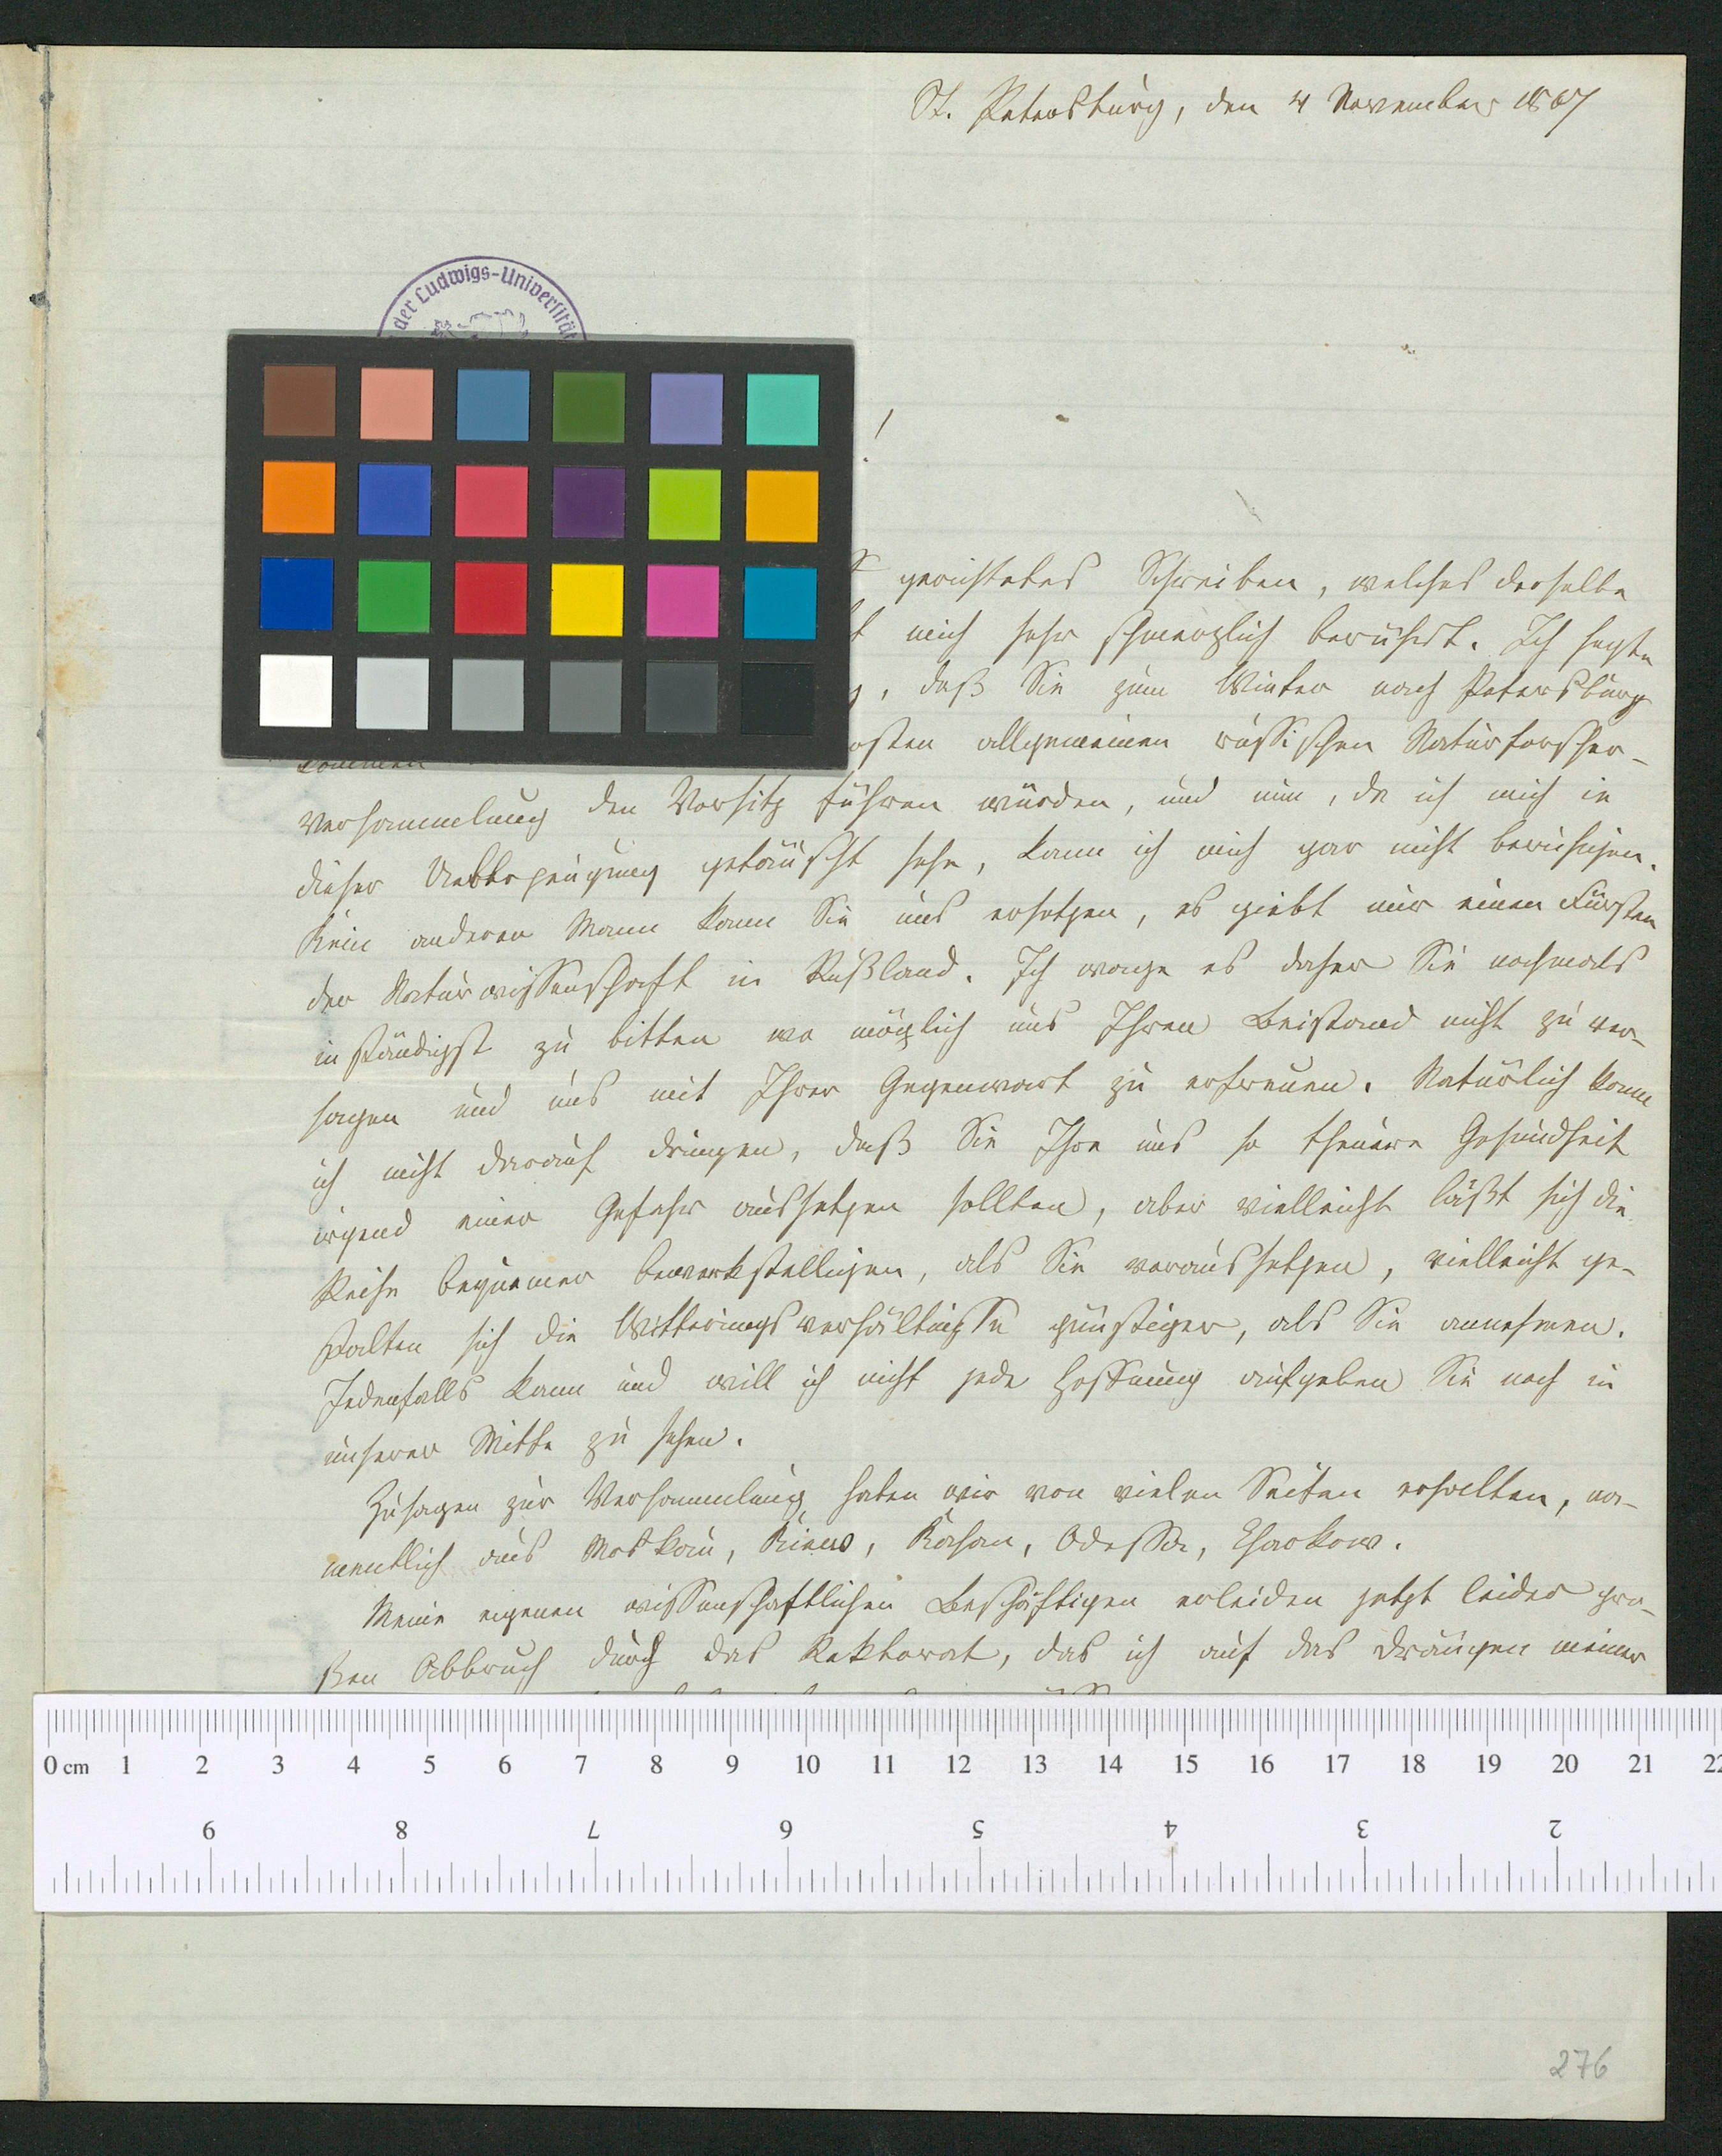 St. Petersburg, den 4 November 1867
der Ludwigs-Universität
!
gerichtetes Schreiben, welches derselbe
mich sehr schmerzlich berührt. Ich hegte
, daß Sie zum Winter nach Petersburg
kommen
ersten allgemeinen russischen Naturforscher-
versammlung den Vorsitz führen würden, und nun, da ich mich in
dieser Ueberzeugung getäuscht sehe, kann ich mich gar nicht beruhigen.
Kein anderer Mann kann Sie uns ersetzen, es giebt nur einen Fürsten
der Naturwissenschaft in Rußland. Ich wage es daher Sie nochmals
inständigst zu bitten wo möglich uns Ihren Beistand nicht zu ver-
sagen und uns mit Ihrer Gegenwart zu erfreuen. Natürlich kann
ich nicht darauf dringen, daß Sie Ihre uns so theuere Gesundheit
irgend einer Gefahr aussetzen sollten, aber vielleicht läßt sich die
Reise bequemer bewerkstelligen, als Sie voraussetzen, vielleicht ge-
stalten sich die Witterungsverhältnisse günstiger, als Sie annehmen.
Jedenfalls kann und will ich nicht jede Hoffnung aufgeben Sie noch in
unserer Mitte zu sehen.
Zusagen zur Versammlung haben wir von vielen Seiten erhalten, na-
mentlich aus Moskau, Kiew, Kasan, Odessa, Charkow.
Meine eigenen wissenschaftlichen Beschäftigen erleiden jetzt leider gro-
ßen Abbruch durch das Rektorat, das ich auf das Drängen meiner
0 cm 1 2 3 4 5 6 7 8 9 10 11 12 13 14 15 16 17 18 19 20 21 22
9 8 7 6 5 4 3 2
276